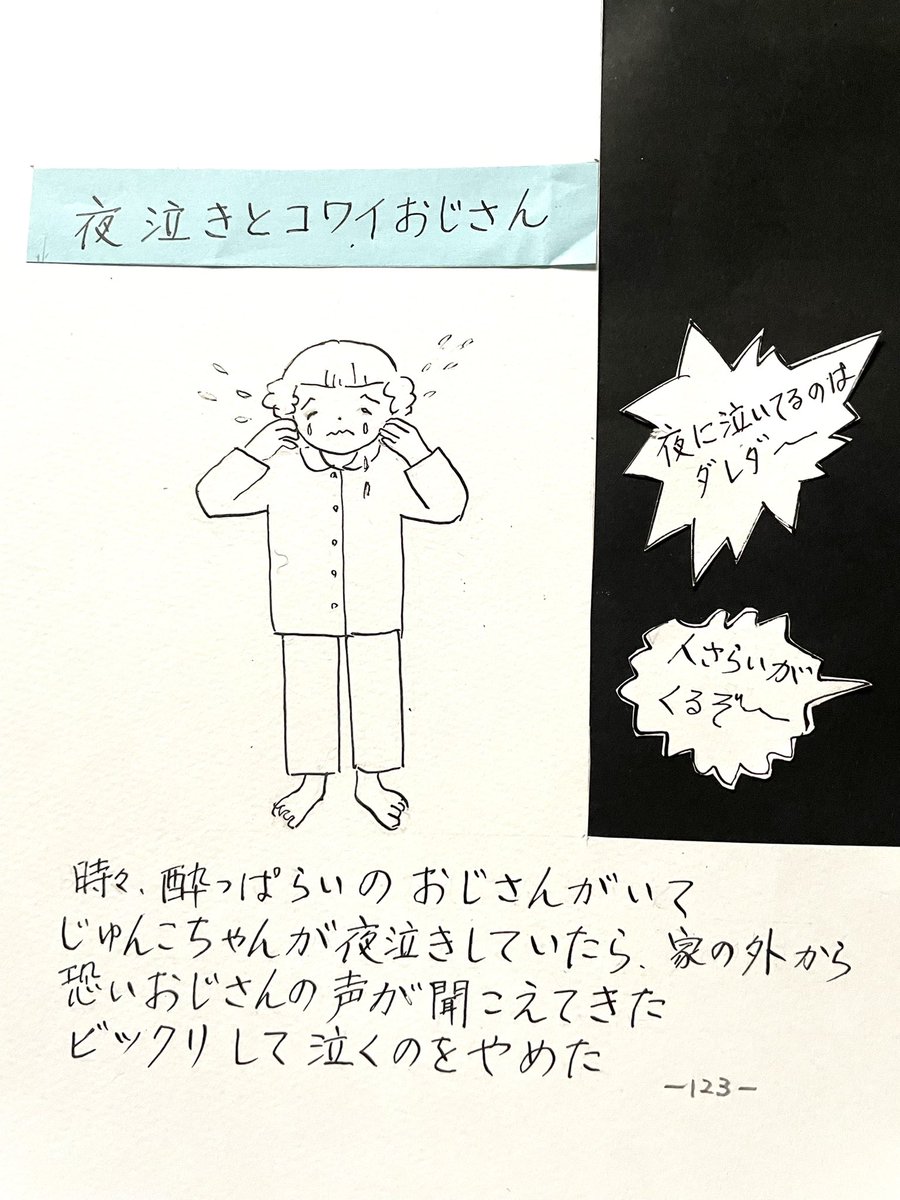 夜泣きとコワイおじさん
夜に泣いてるのは
ダレダ〜
人さらいが
くるぞ〜
時々、酔っぱらいのおじさんがいて
じゅんこちゃんが夜泣きしていたら、家の外から
恐いおじさんの声が聞こえてきた
ビックリして泣くのをやめた
-123-